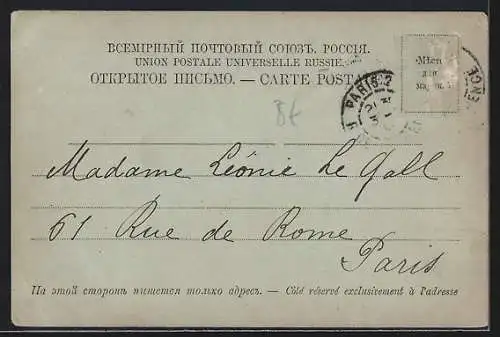 ВСЕМІРНЫЙ ПОЧТОВЫЙ СОЮЗЪ. РОССІЯ.
UNION POSTALE UNIVERSELLE RUSSIE.
ОТКРЫТОЕ ПИСЬМО. — CARTE POSTA
Мѣсто
для
марки.
PARIS
84
Madame Léonie Le Gall
61 Rue de Rome
Paris
На этой сторонѣ пишется только адресъ. — Côté réservé exclusivement à l'adresse